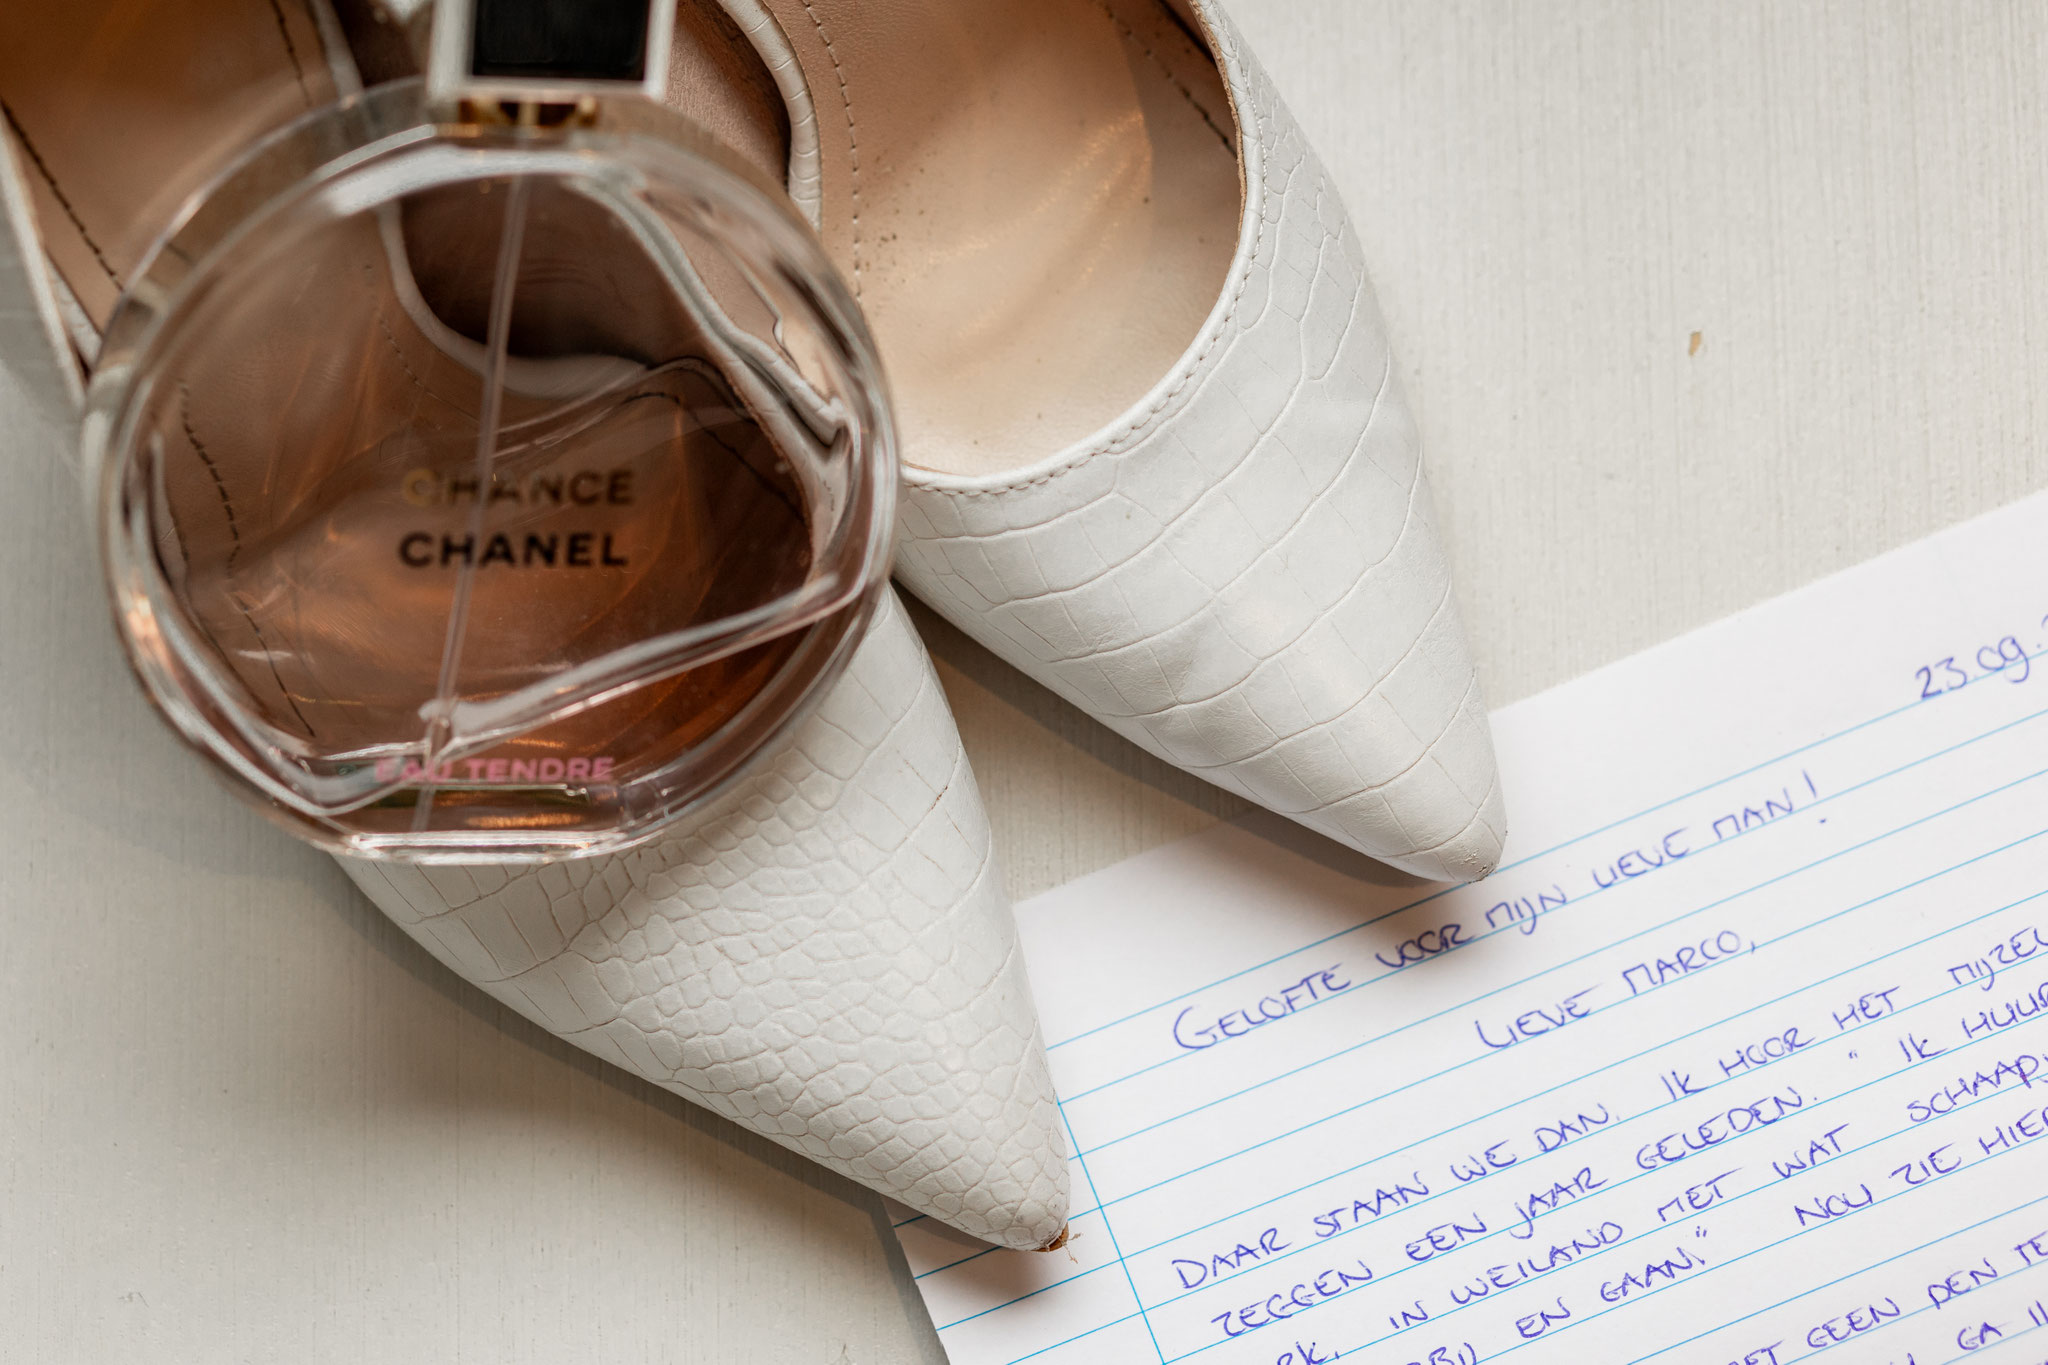 CHANCE
CHANEL
EAU TENDRE
23.09.
GELOFTE VOOR MIJN LIEVE MAN!
LIEVE MARCO,
DAAR STAAN WE DAN. IK HOOR HET
ZEGGEN EEN JAAR GELEDEN. " IK
IN WEILAND MET WAT
EN GAAN." NOU ZIE HIER
GEEN DEN
GA